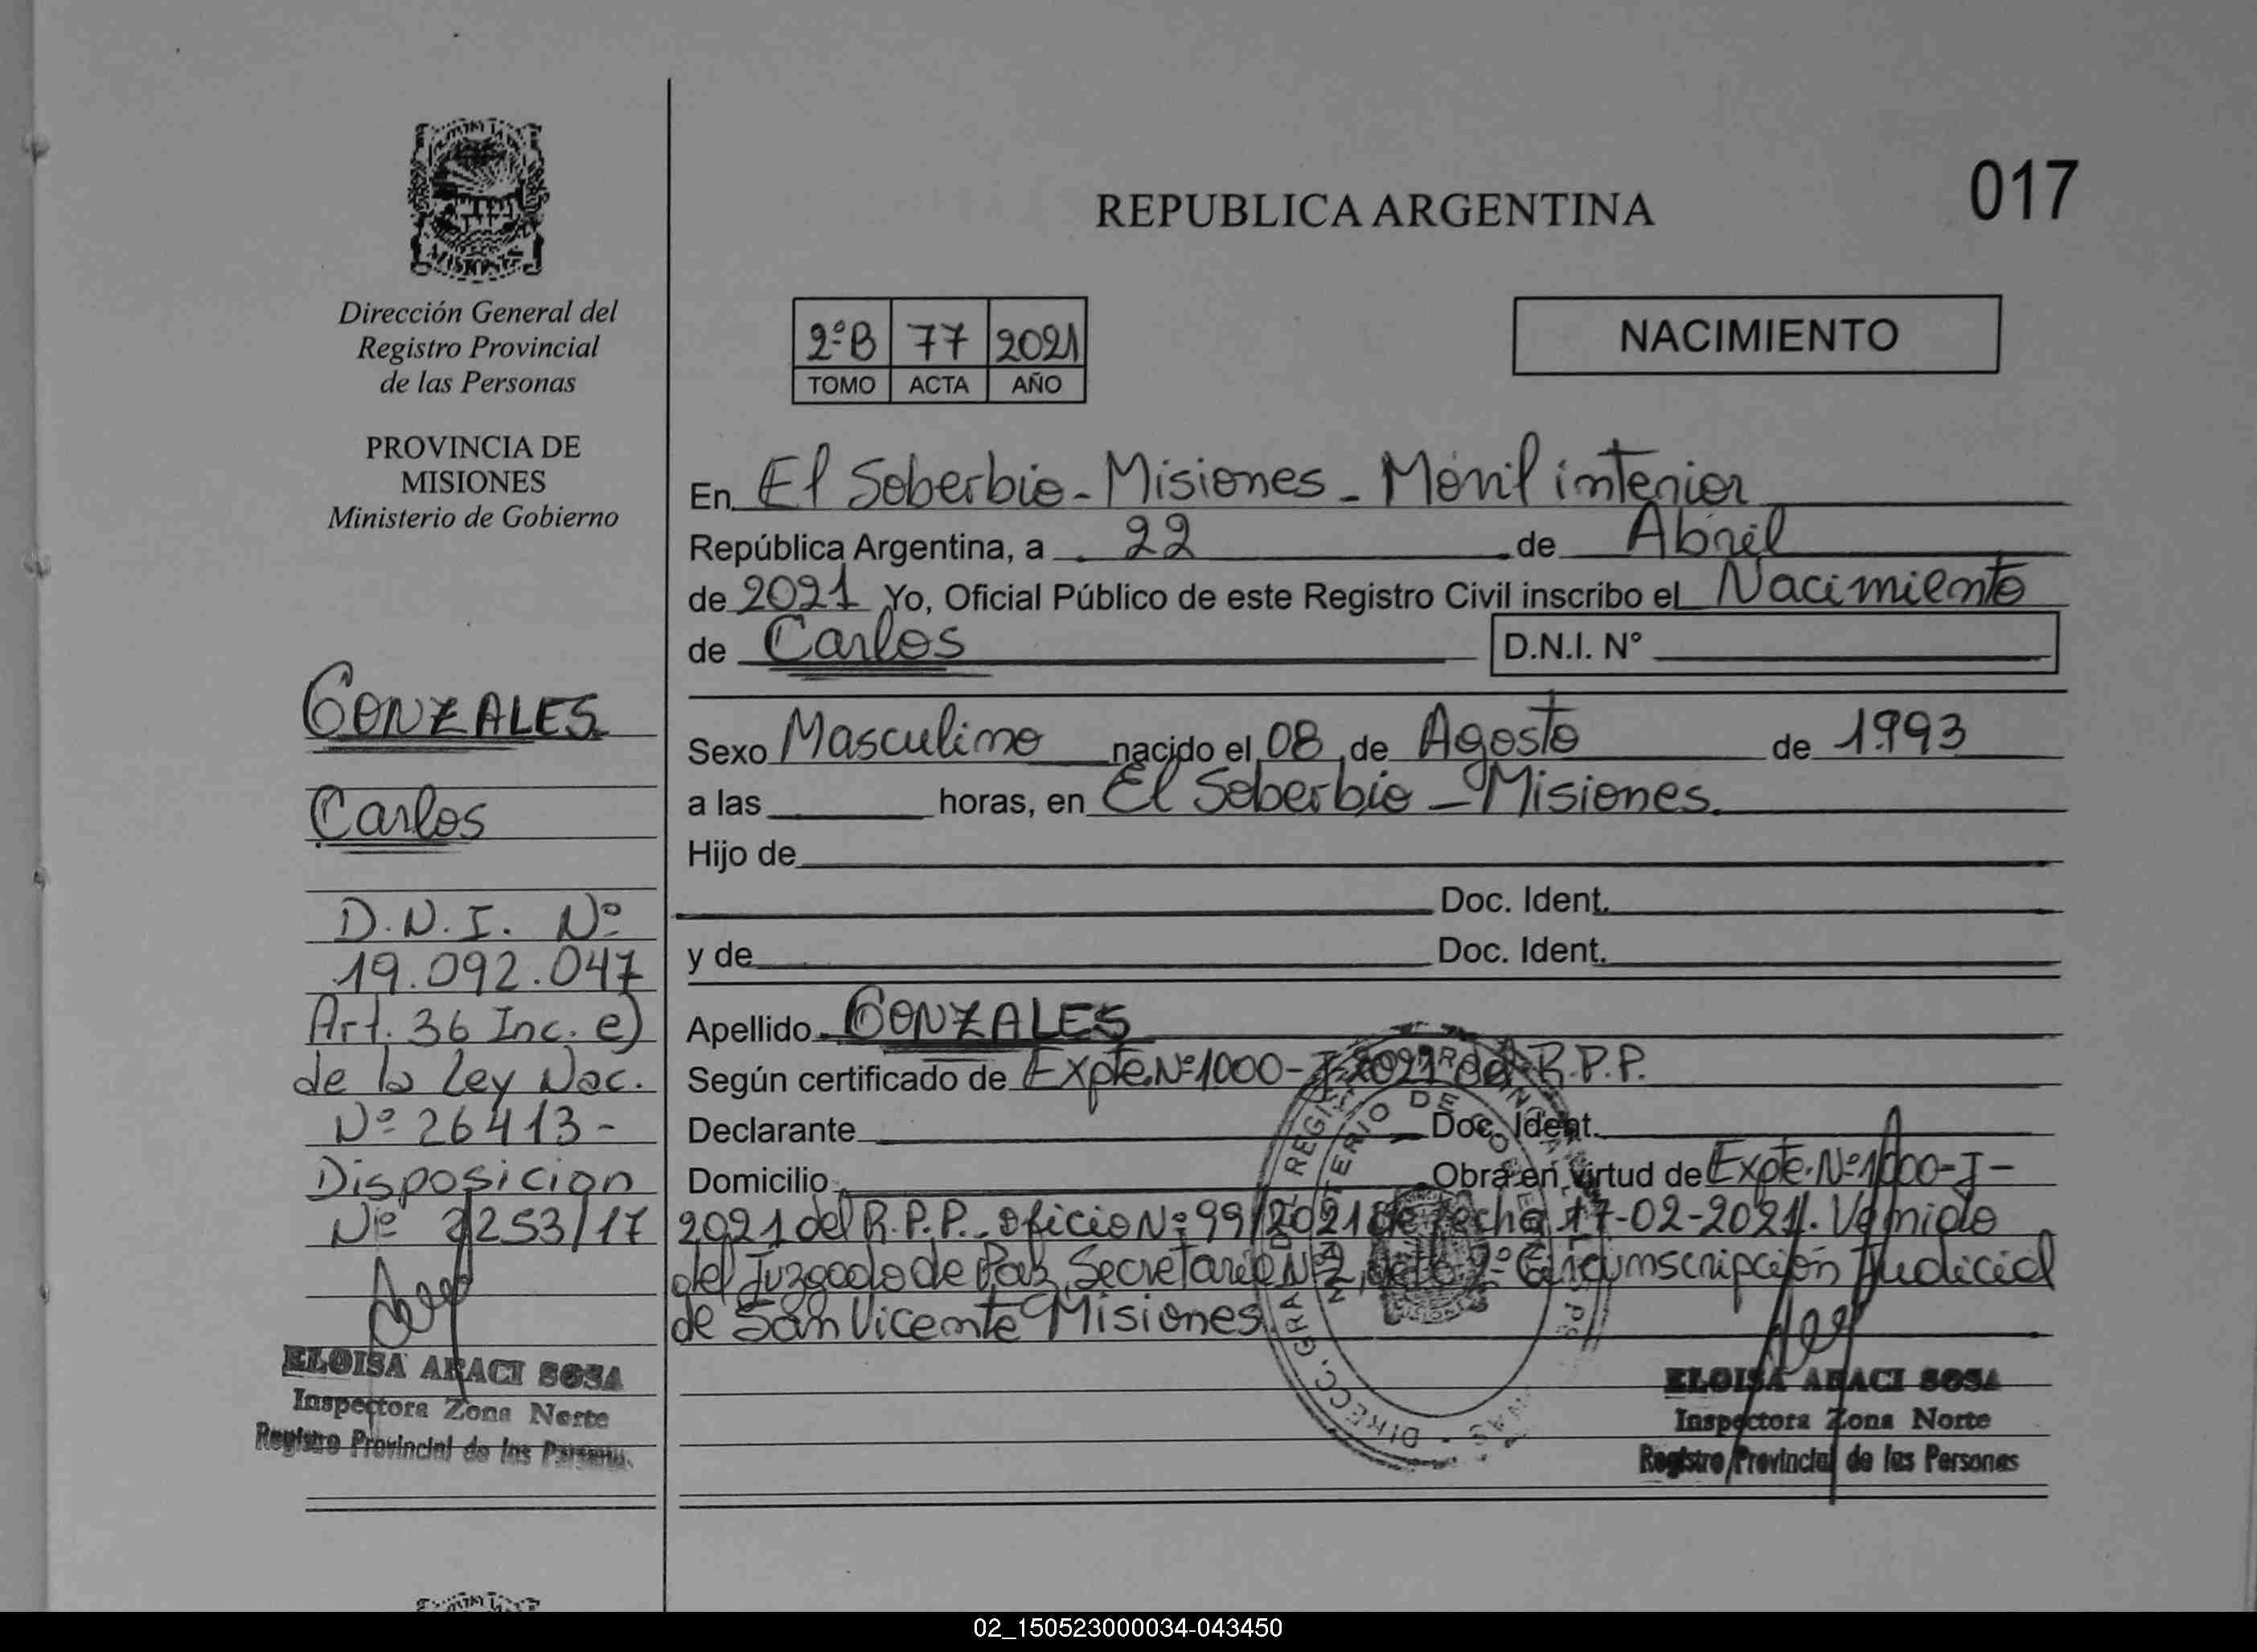 017
REPUBLICA ARGENTINA
Dirección General del
Registro Provincial
de las Personas
PROVINCIA DE
MISIONES
Ministerio de Gobierno
GONZALES
Carlos
D.N.I. Nº
19.092.047
Art. 36 Inc. e)
de la Ley Nac.
Nº 26413-
Disposicion
Nº 2253/17
ELOISA ARACI SOSA
Inspectora Zona Norte
Registro Provincial de las Personas
2ºB 77 2021
TOMO ACTA AÑO
NACIMIENTO
En El Soberbio - Misiones - Móvil interior
República Argentina, a 22 de Abril
de 2021 Yo, Oficial Público de este Registro Civil inscribo el Nacimiento
de Carlos D.N.I. N°
Sexo Masculino nacido el 08 de Agosto de 1.993
a las horas, en El Soberbio - Misiones.
Hijo de
Doc. Ident.
y de Doc. Ident.
Apellido GONZALES
Según certificado de Expte. Nº 1000-J-2021 del R.P.P.
Declarante Doc. Ident.
Domicilio Obra en virtud de Expte. Nº 1000-J-
2021 del R.P.P. Oficio Nº 99/2021 de fecha 17-02-2021. Venido
del Juzgado de Paz, Secretaría Nº 2, de la 2º Circunscripción Judicial
de San Vicente Misiones
ELOISA ARACI SOSA
Inspectora Zona Norte
Registro Provincial de las Personas
02_150523000034-043450